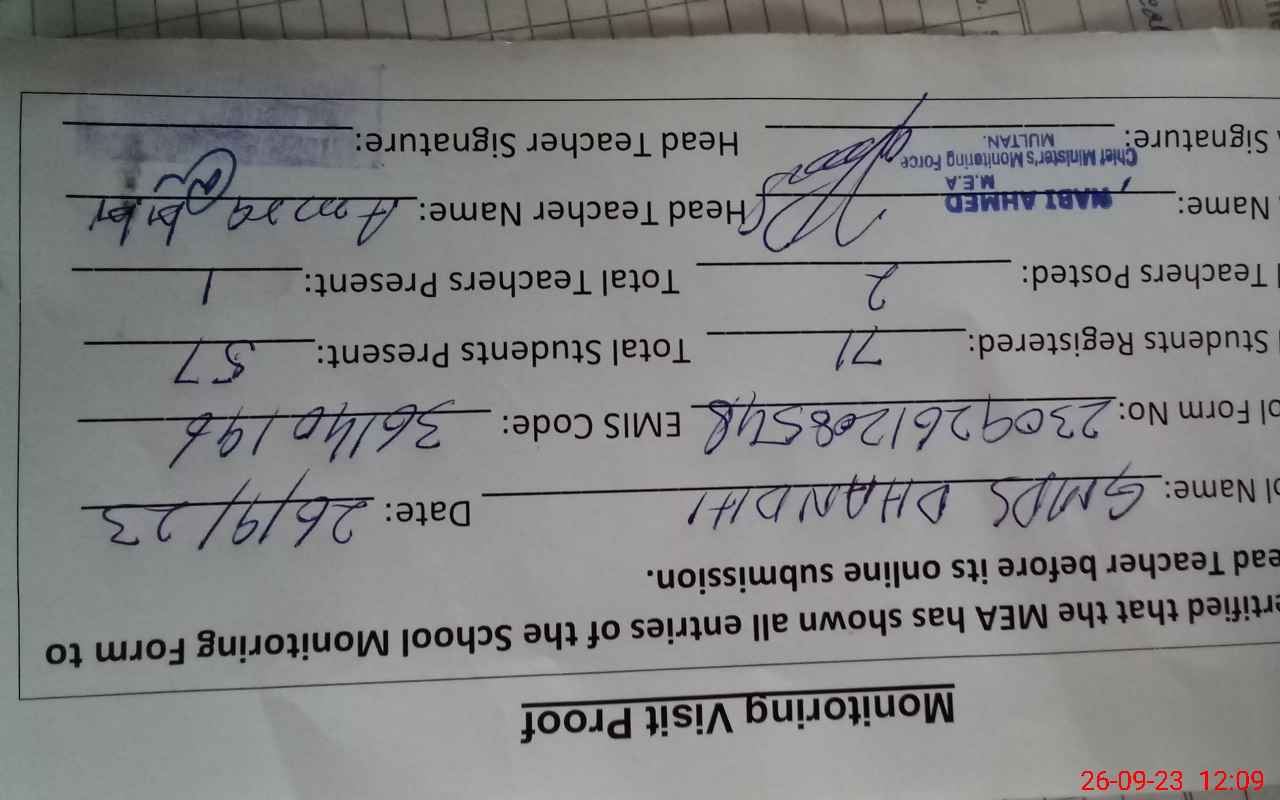 Monitoring Visit Proof
ertified that the MEA has shown all entries of the School Monitoring Form to
ead Teacher before its online submission.
ol Name: GMPS DHANDHI Date: 26/9/23
ol Form No: 230926120854 EMIS Code: 36140196
l Students Registered: 71 Total Students Present: 57
l Teachers Posted: 2 Total Teachers Present: 1
Name: NABI AHMED Head Teacher Name: bibi
M.E.A
Chief Minister's Monitoring Force
MULTAN.
Signature: Head Teacher Signature:
26-09-23 12:09